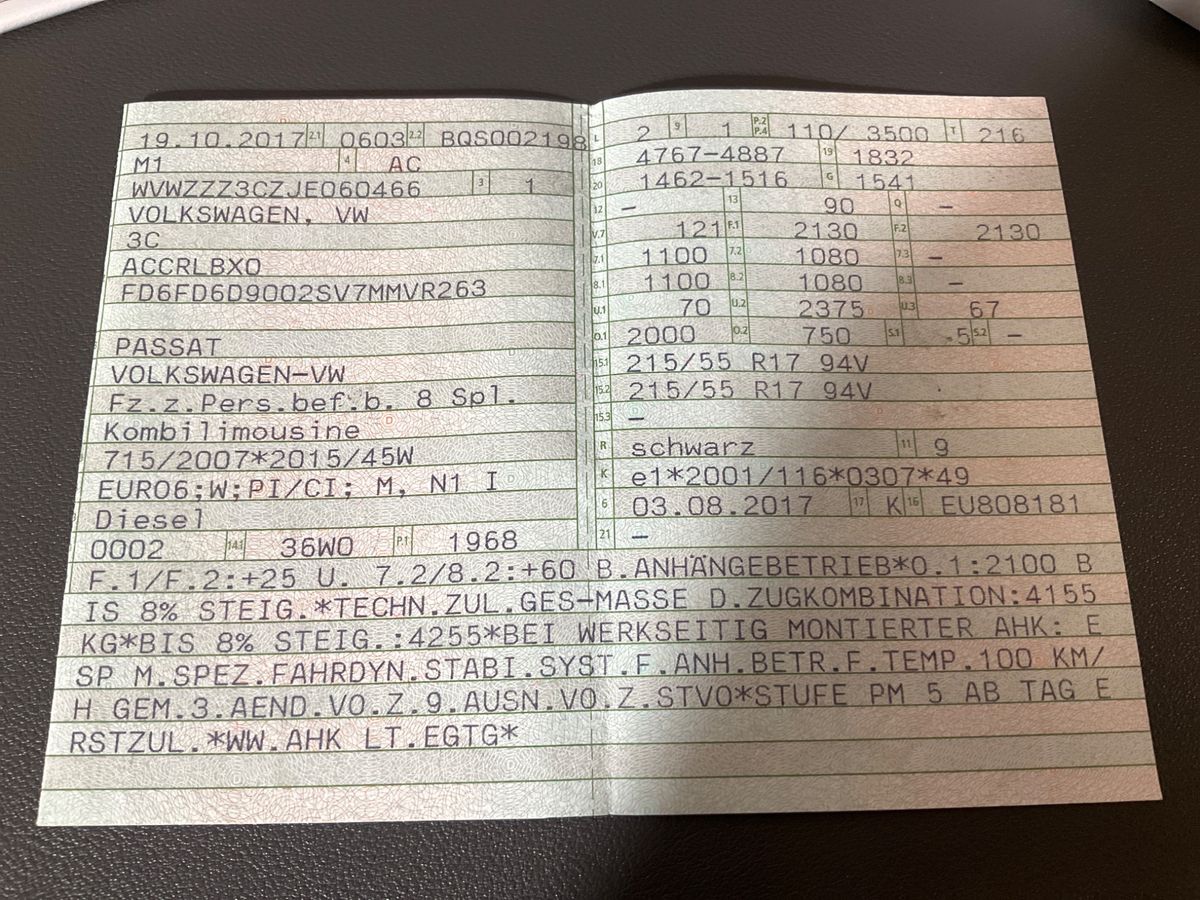 19.10.2017 2.1 0603 2.2 BQS002198
M1 4 AC
WVWZZZ3CZJE060466 3 1
VOLKSWAGEN, VW
3C
ACCRLBX0
FD6FD6D9002SV7MMVR263
PASSAT
VOLKSWAGEN-VW
Fz.z.Pers.bef.b. 8 Spl.
Kombilimousine
715/2007*2015/45W
EURO6;W;PI/CI; M, N1 I
Diesel
0002 14.1 36W0 P.1 1968
L 2 9 1 P.2 P.4 110/ 3500 T 216
18 4767-4887 19 1832
20 1462-1516 G 1541
12 – 13 90 Q –
V.7 121 F.1 2130 F.2 2130
7.1 1100 7.2 1080 7.3 –
8.1 1100 8.2 1080 8.3 –
U.1 70 U.2 2375 U.3 67
O.1 2000 O.2 750 S.1 5 S.2 –
15.1 215/55 R17 94V
15.2 215/55 R17 94V
15.3 –
R schwarz 11 9
K e1*2001/116*0307*49
6 03.08.2017 17 K 16 EU808181
21 –
F.1/F.2:+25 U. 7.2/8.2:+60 B.ANHÄNGEBETRIEB*O.1:2100 B
IS 8% STEIG.*TECHN.ZUL.GES-MASSE D.ZUGKOMBINATION:4155
KG*BIS 8% STEIG.:4255*BEI WERKSEITIG MONTIERTER AHK: E
SP M.SPEZ.FAHRDYN.STABI.SYST.F.ANH.BETR.F.TEMP.100 KM/
H GEM.3.AEND.VO.Z.9.AUSN.VO.Z.STVO*STUFE PM 5 AB TAG E
RSTZUL.*WW.AHK LT.EGTG*